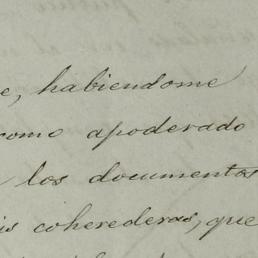 e, habiendome
como apoderado
los documentos
is coherederas, que